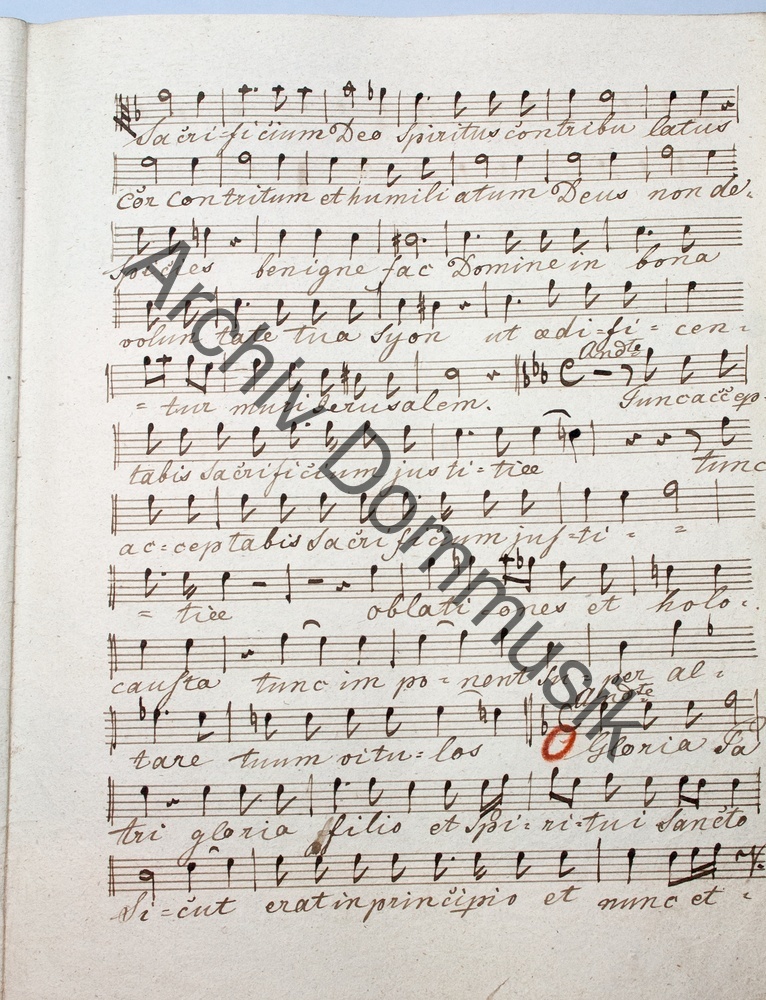 Sacri-ficium Deo Spiritus contribu latus
cor contritum et humili atum Deus non de-
spicies benigne fac Domine in bona
volun tate tua Syon ut ædi-fi-cen-
Andte
-tur muri Jerusalem. Tunc accep-
tabis Sacrificium jus ti-tiæ tunc
ac-ceptabis Sacri ficium jus-ti--
-tiæ oblati ones et holo-
causta tunc im po-nent su-per al-
Andte
tare tuum vitu-los Gloria Pa
tri gloria filio et Spi-ri-tui Sancto
Si-cut erat in principio et nunc et-
Archiv Dommusik